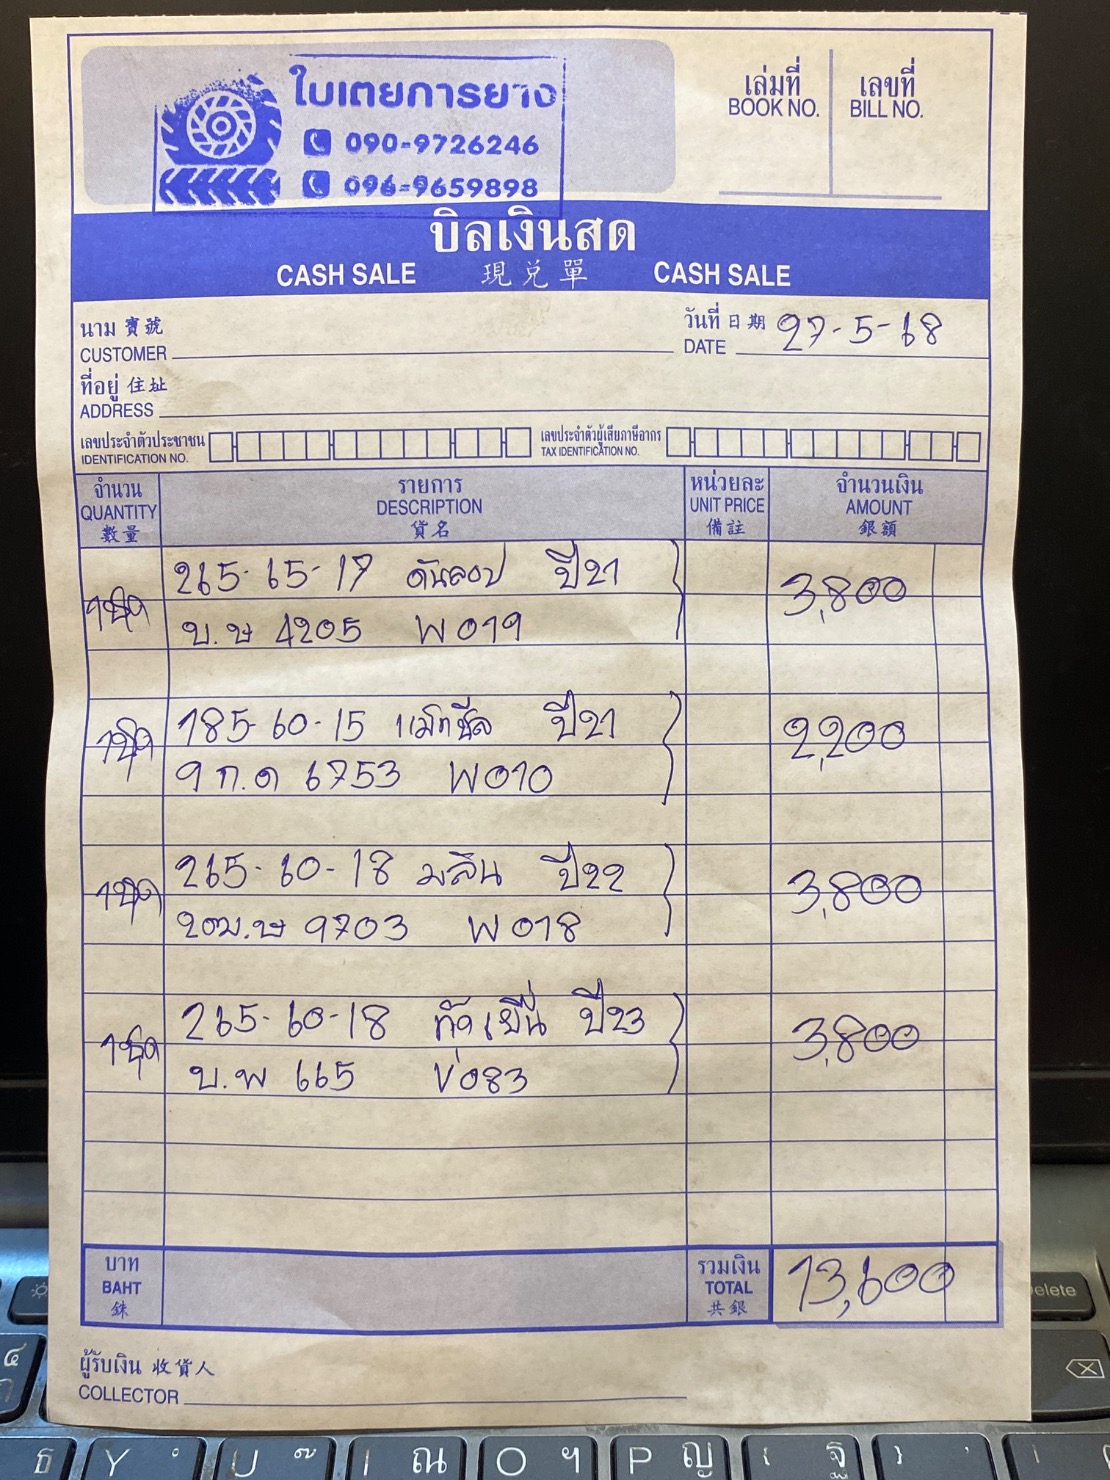 ใบเตยการยาง
090-9726246
096-9659898
เล่มที่
BOOK NO.
เลขที่
BILL NO.
บิลเงินสด
CASH SALE 現兌單 CASH SALE
นาม 寶號
CUSTOMER
วันที่ 日期 27-5-68
DATE
ที่อยู่ 住址
ADDRESS
เลขประจำตัวประชาชน
IDENTIFICATION NO.
เลขประจำตัวผู้เสียภาษีอากร
TAX IDENTIFICATION NO.
จำนวน รายการ หน่วยละ จำนวนเงิน
QUANTITY DESCRIPTION UNIT PRICE AMOUNT
數量 貨名 備註 銀額
1ชุด 265-65-17 ดันลอป ปี21 3,800
บ.ษ 4205 พ019
1ชุด 185-60-15 แม็กซีส ปี21 2,200
9ก.ด 6753 พ010
1ชุด 265-60-18 มลิน ปี22 3,800
2ฒ.ษ 9703 พ018
1ชุด 265-60-18 ปี23 3,800
บ.พ 665 ข083
บาท
BAHT
銖
รวมเงิน
TOTAL
共銀
13,600
ผู้รับเงิน 收貨人
COLLECTOR